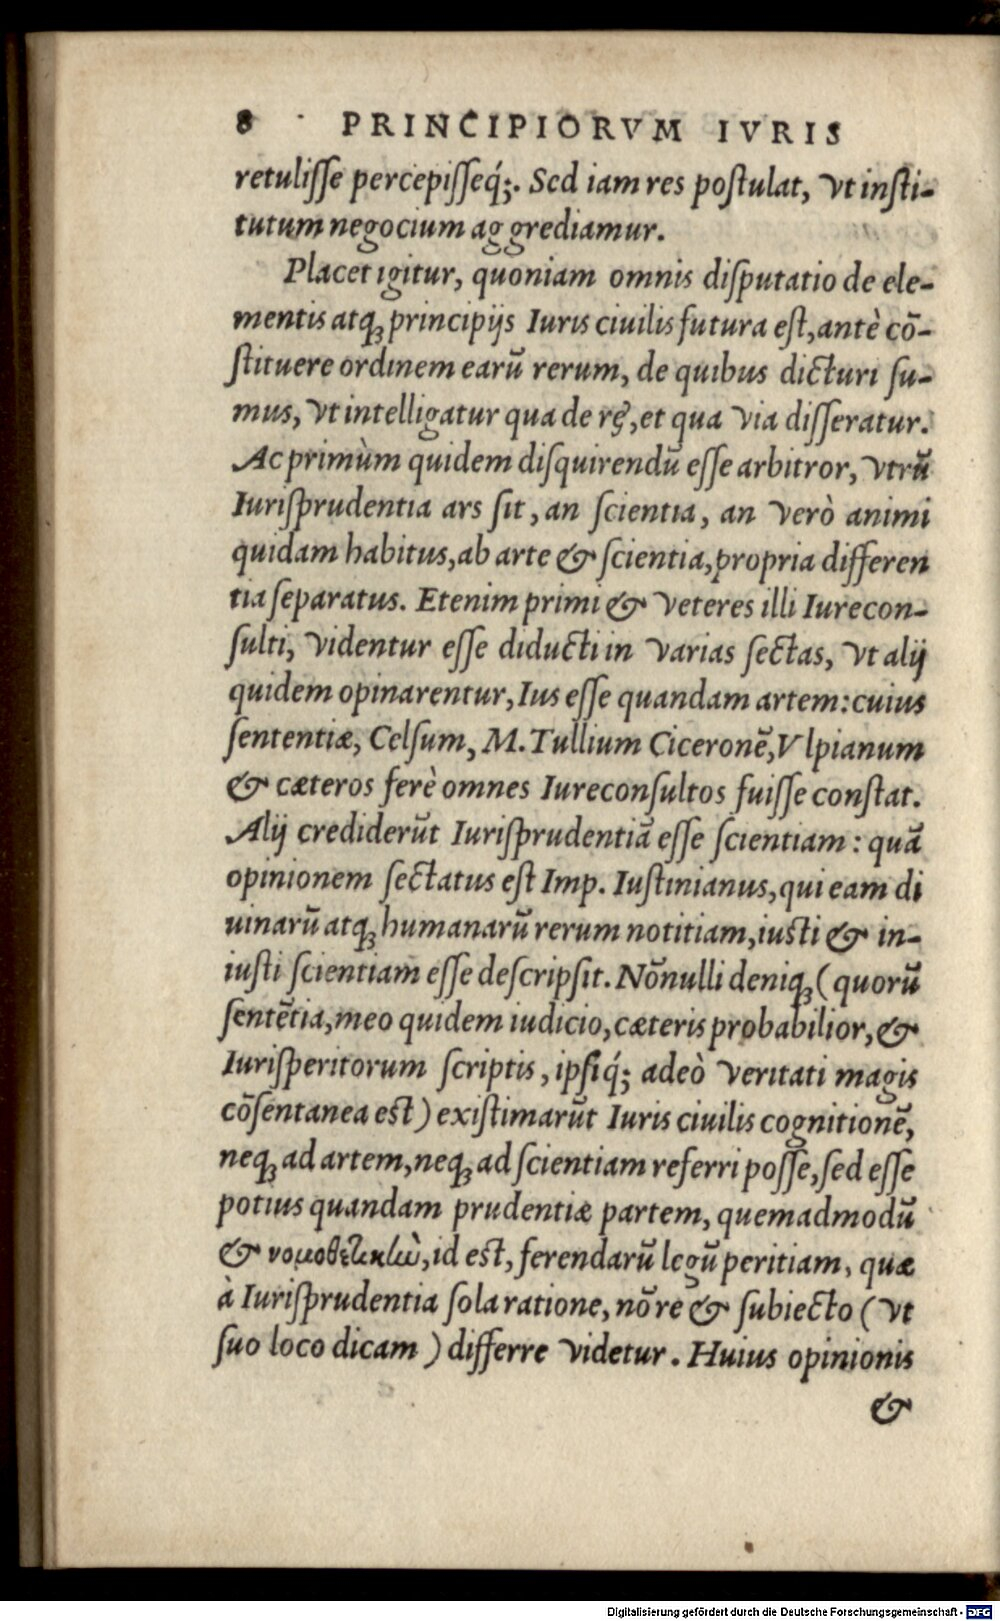 8 PRINCIPIORVM IVRIS
retulisse percepisseq́;. Sed iam res postulat, vt insti-
tutum negocium aggrediamur.
Placet igitur, quoniam omnis disputatio de ele-
mentis atq; principijs Iuris ciuilis futura est, antè cō-
stituere ordinem earū rerum, de quibus dicturi su-
mus, vt intelligatur qua de rę, et qua via disseratur.
Ac primùm quidem disquirendū esse arbitror, vtrū
Iurisprudentia ars sit, an scientia, an verò animi
quidam habitus, ab arte & scientia, propria differen
tia separatus. Etenim primi & veteres illi Iurecon-
sulti, videntur esse diducti in varias sectas, vt alij
quidem opinarentur, Ius esse quandam artem: cuius
sententiæ, Celsum, M. Tullium Ciceronē, Vlpianum
& cæteros ferè omnes Iureconsultos fuisse constat.
Alij crediderūt Iurisprudentiā esse scientiam: quā
opinionem sectatus est Imp. Iustinianus, qui eam di
uinarū atq; humanarū rerum notitiam, iusti & in-
iusti scientiam esse descripsit. Nōnulli deniq; (quorū
sentētia, meo quidem iudicio, cæteris probabilior, &
Iurisperitorum scriptis, ipsiq́; adeò veritati magis
cōsentanea est) existimarūt Iuris ciuilis cognitionē,
neq; ad artem, neq; ad scientiam referri posse, sed esse
potius quandam prudentiæ partem, quemadmodū
& νομοθετικὼ, id est, ferendarū legū peritiam, quæ
à Iurisprudentia sola ratione, nō re & subiecto (vt
suo loco dicam) differre videtur. Huius opinionis
&
Digitalisierung gefördert durch die Deutsche Forschungsgemeinschaft - DFG